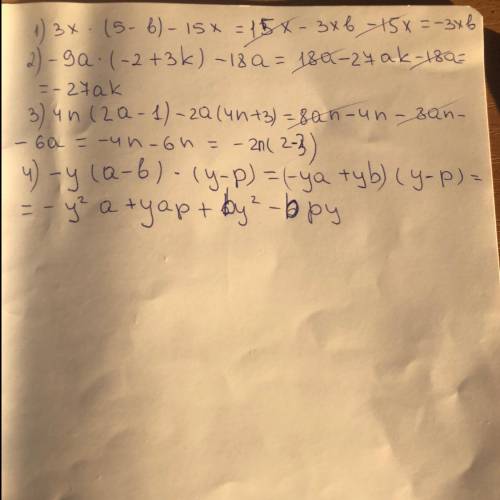 1) 3x · (5 - b) - 15x = 15x - 3xb - 15x = -3xb
2) -9a · (-2 + 3k) - 18a = 18a - 27ak - 18a =
= -27ak
3) 4n (2a - 1) - 2a (4n + 3) = 8an - 4n - 8an -
- 6a = -4n - 6n = -2n( 2-3)
4) -y (a - b) · (y - p) = (-ya + yb) (y - p) =
= -y² a + yap + by² - b py